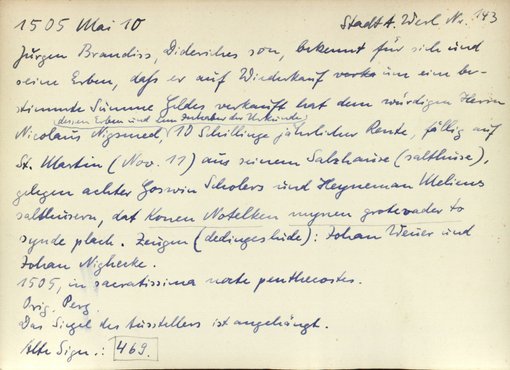 1505 Mai 10 Stadt A. Werl Nr. 143
Jürgen Brandiss, Diderikes son, bekennt für sich und
seine Erben, dass er auf Wiederkauf um eine be-
stimmte Summe Geldes verkauft hat dem würdigen Herrn
dessen Erben und dem Inhaber der Urkunde,
Nicolaus 10 Schillinge jährlicher Rente, fällig auf
St. Martin (Nov. 11) aus seinem Salzhause (salthuise),
gelegen achter Goswin Scholers und Heyneman Meliens
salthusern, dat Konen Notelken mynen grotevader to
synde plach. Zeugen (dedingeslude): Johan und
Johan Nigherke.
1505, in sacratissima nocte penthecostes.
Orig. Perg.
Das Siegel des Ausstellers ist angehängt.
Alte Sign.: 469.